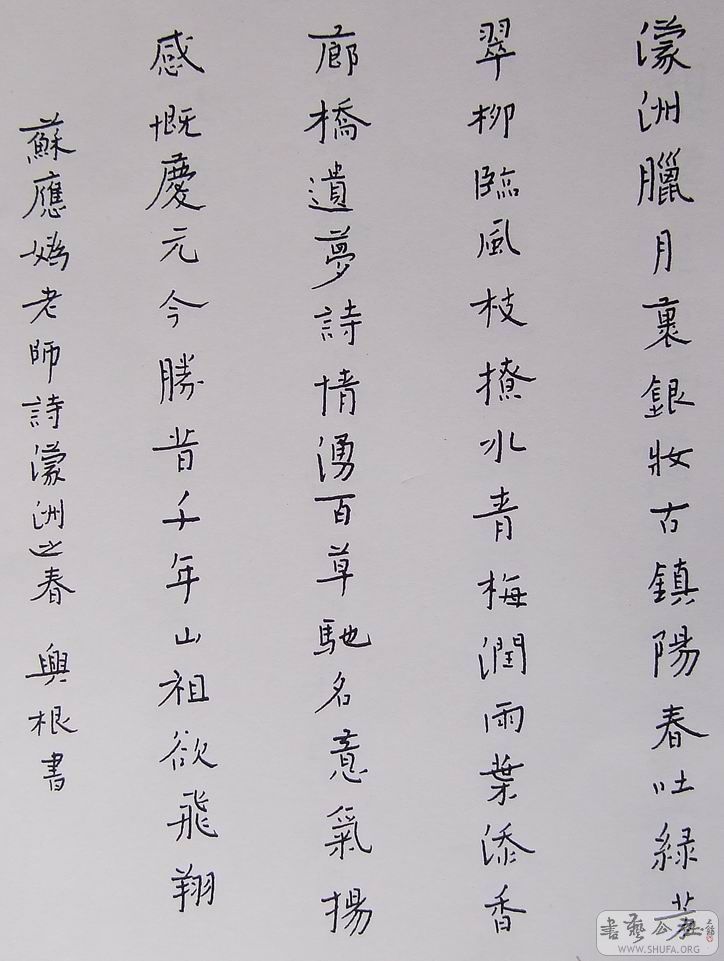 濛洲臘月裹銀妝古鎮陽春吐綠芳
翠柳臨風枝撩水青梅潤雨葉添香
廊橋遺夢詩情湧百草馳名意氣揚
感慨慶元今勝昔千年山祖欲飛翔
蘇應老師詩濛洲之春 興根書
書藝公社
WWW.SHUFA.ORG